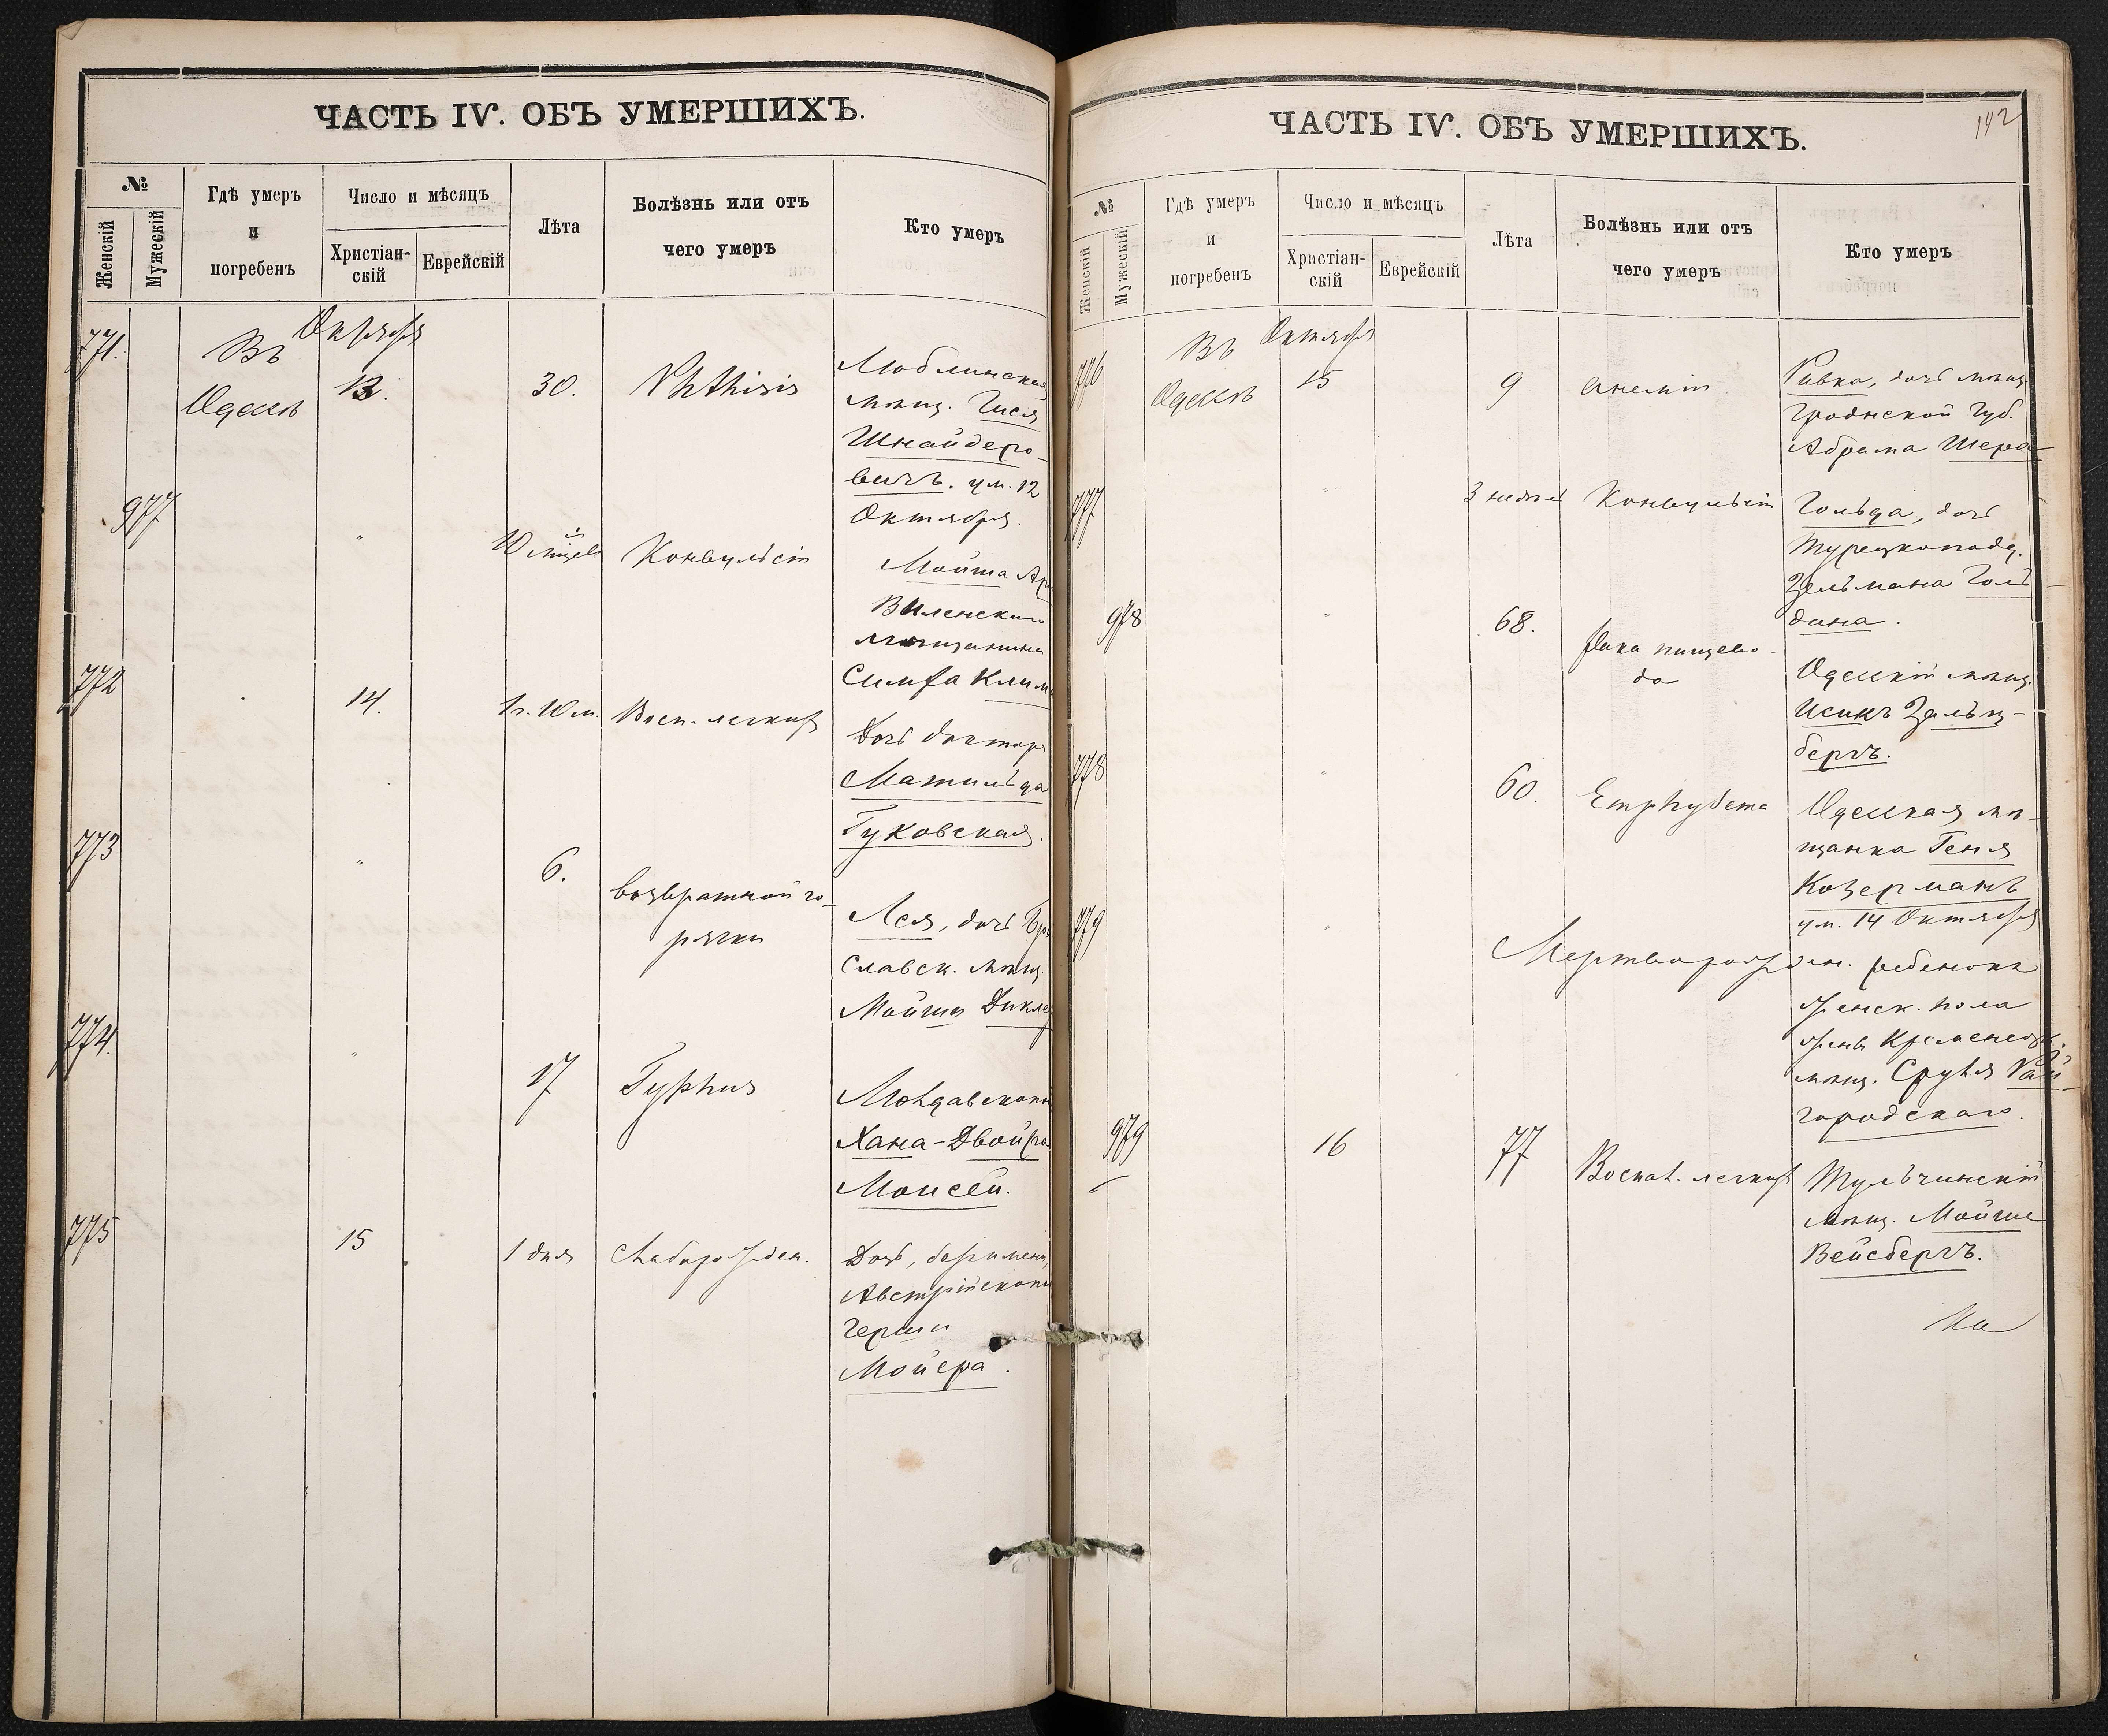 ЧАСТЬ IV. ОБЪ УМЕРШИХЪ.
№
Женскій
Мужескій
Гдѣ умеръ
и
погребенъ
Число и мѣсяцъ
Христіан-
скій
Еврейскій
Лѣта
Болѣзнь или отъ
чего умеръ
Кто умеръ
771.
Въ
Одессѣ
Октября
13.
30.
Phthisis
Люблинская
мѣщ. Гися
Шнайдеро-
вичъ. ум. 12
Октября.
977
"
10 мѣсяц.
Конвульсіи
Мойша
Виленскаго
мѣщанина
Симха
772
14.
1 г. 10 м.
Восп. легкихъ
Дочь доктора
Матильда
Гуковская.
773
"
6.
возвратной го-
рячки
Лея, дочь
славск. мѣщ.
Мойши
774.
"
17
Typhus
Хана-Двойра
Моисей.
775
15
1 дня
Слаборожден.
Дочь, безимени,
Австрійскопод
Герши
Мойера.
ЧАСТЬ IV. ОБЪ УМЕРШИХЪ.
142
№
Женскій
Мужескій
Гдѣ умеръ
и
погребенъ
Число и мѣсяцъ
Христіан-
скій
Еврейскій
Лѣта
Болѣзнь или отъ
чего умеръ
Кто умеръ
776
Въ
Одессѣ
Октября
15
9
Анеміи
Ривка, дочь мѣщ.
Гродненской Губ.
Абрама Шера
777
"
3 недѣль
Конвульсіи
Гольда, дочь
Турецкоподд.
Зельмана Голь-
дина.
978
"
68.
Рака пищево-
да
Одесскій мѣщ.
Исикъ Зальц-
бергъ.
778
"
60.
Emphysema
Одесская мѣ-
щанка Геня
Козерманъ
ум. 14 Октября
779
"
Мертворожден. ребенокъ
женск. пола
жены Кременецк.
мѣщ. Сруля Рай-
городскаго.
979
16
77
Воспал. легкихъ
Тульчинскій
мѣщ. Мойше
Вейсбергъ.